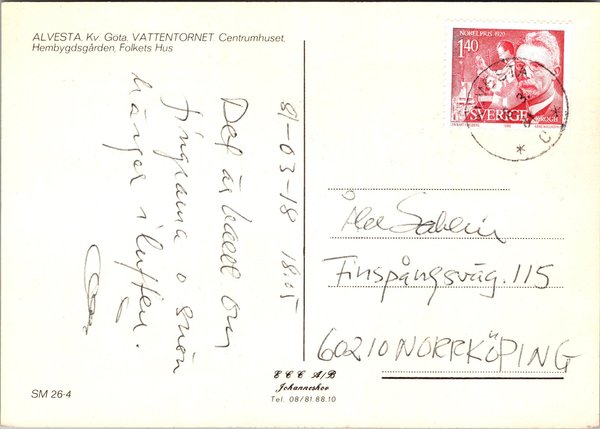 ALVESTA. Kv. Göta. VATTENTORNET Centrumhuset.
Hembygdsgården, Folkets Hus
81-03-18 18.05
Det är kall om
fingrarna o snön
hänger i luften.
NOBELPRIS 1920
1.40
SVERIGE
KROGH
ALVESTA
Åke Sahlin
Finspångsväg. 115
60210 NORRKÖPING
E C C A/B
Johanneshov
Tel. 08/81.88.10
SM 26-4